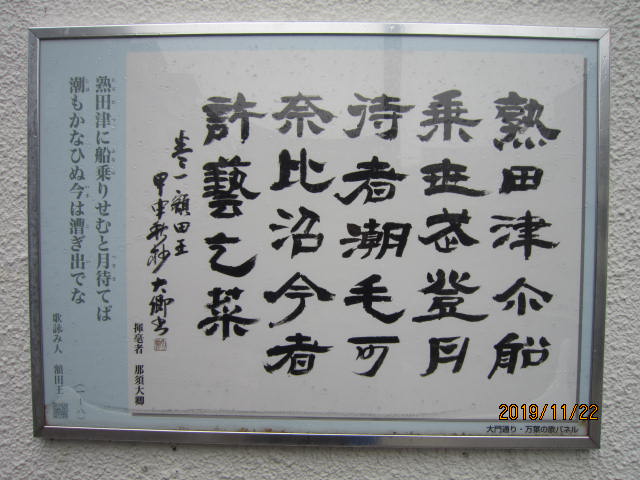 熟田津尓船
乗世武登月
待者潮毛可
奈比沼今者
許藝乞菜
巻一 額田王
甲申新秋 大卿書
揮毫者 那須大卿
熟田津に船乗りせむと月待てば
潮もかなひぬ今は漕ぎ出でな
歌詠み人 額田王
(一-八)
大門通り・万葉の歌パネル
2019/11/22